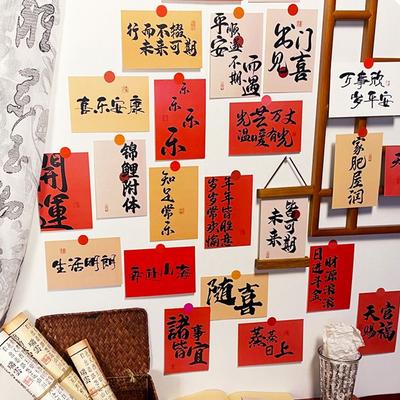 行而不辍
未来可期
平安
顺遂
不期
而遇
出门
见喜
岁平安
喜乐安康
乐
乐
乐
光芒万丈
温暖有光
家肥屋润
開運
锦鲤
附体
知足常乐
年年皆胜意
岁岁常欢愉
未来
皆可期
生活明朗
随喜
财源滚滚
日进斗金
諸事
皆宜
蒸蒸
日上
天官
赐福